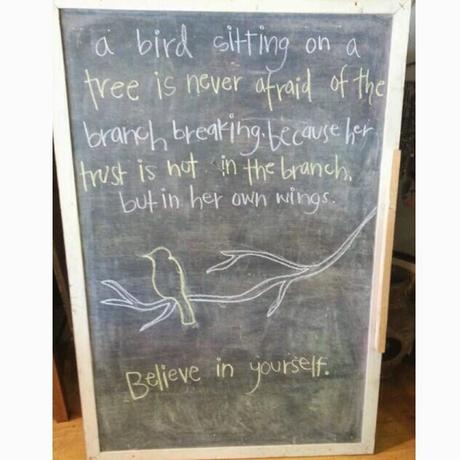 a bird sitting on a
tree is never afraid of the
branch breaking. because her
trust is not in the branch.
but in her own wings.
Believe in yourself.